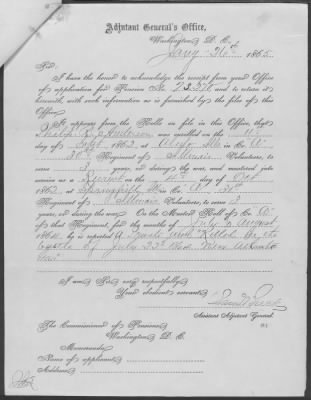 Adjutant General's Office,
Washington, D. C.
Jany 26th 1865
Sir:
I have the honor to acknowledge the receipt from your Office
of application for Pension No. and to return it
herewith, with such information as is furnished by the files of this
Office.
It appears from the Rolls on file in this Office, that
Philip R. Anderson was enrolled on the
day of Sept 1862, at in Co. A
30th Regiment of Illinois Volunteers, to
serve 3 years, or during the war, and mustered into
service as a on the day of Oct
1862, at Springfield, Ills in Co. A
Regiment of Illinois Volunteers, to serve 3
years, or during the war. On the Muster Roll of Co. A
of that Regiment, for the months of July & August
1864, he is reported "Killed
July 22d 1864. Near Atlanta
Ga"
I am, Sir, very respectfully,
Your obedient servant,
Assistant Adjutant General.
The Commissioner of Pensions,
Washington, D. C.
Memoranda:
Name of applicant
Address